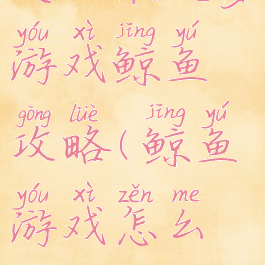 yóu xì jīng yú
游戏鲸鱼
gōng lüè jīng yú
攻略(鲸鱼
yóu xì zěn me
游戏怎么